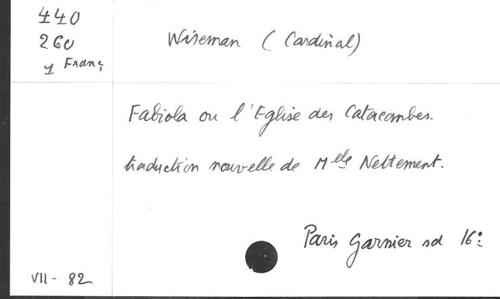 440
260
1 Franç
Wiseman ( Cardinal)
Fabiola ou l'Eglise des Catacombes.
traduction nouvelle de Melle Nettement.
Paris Garnier sd 16°
VII - 82